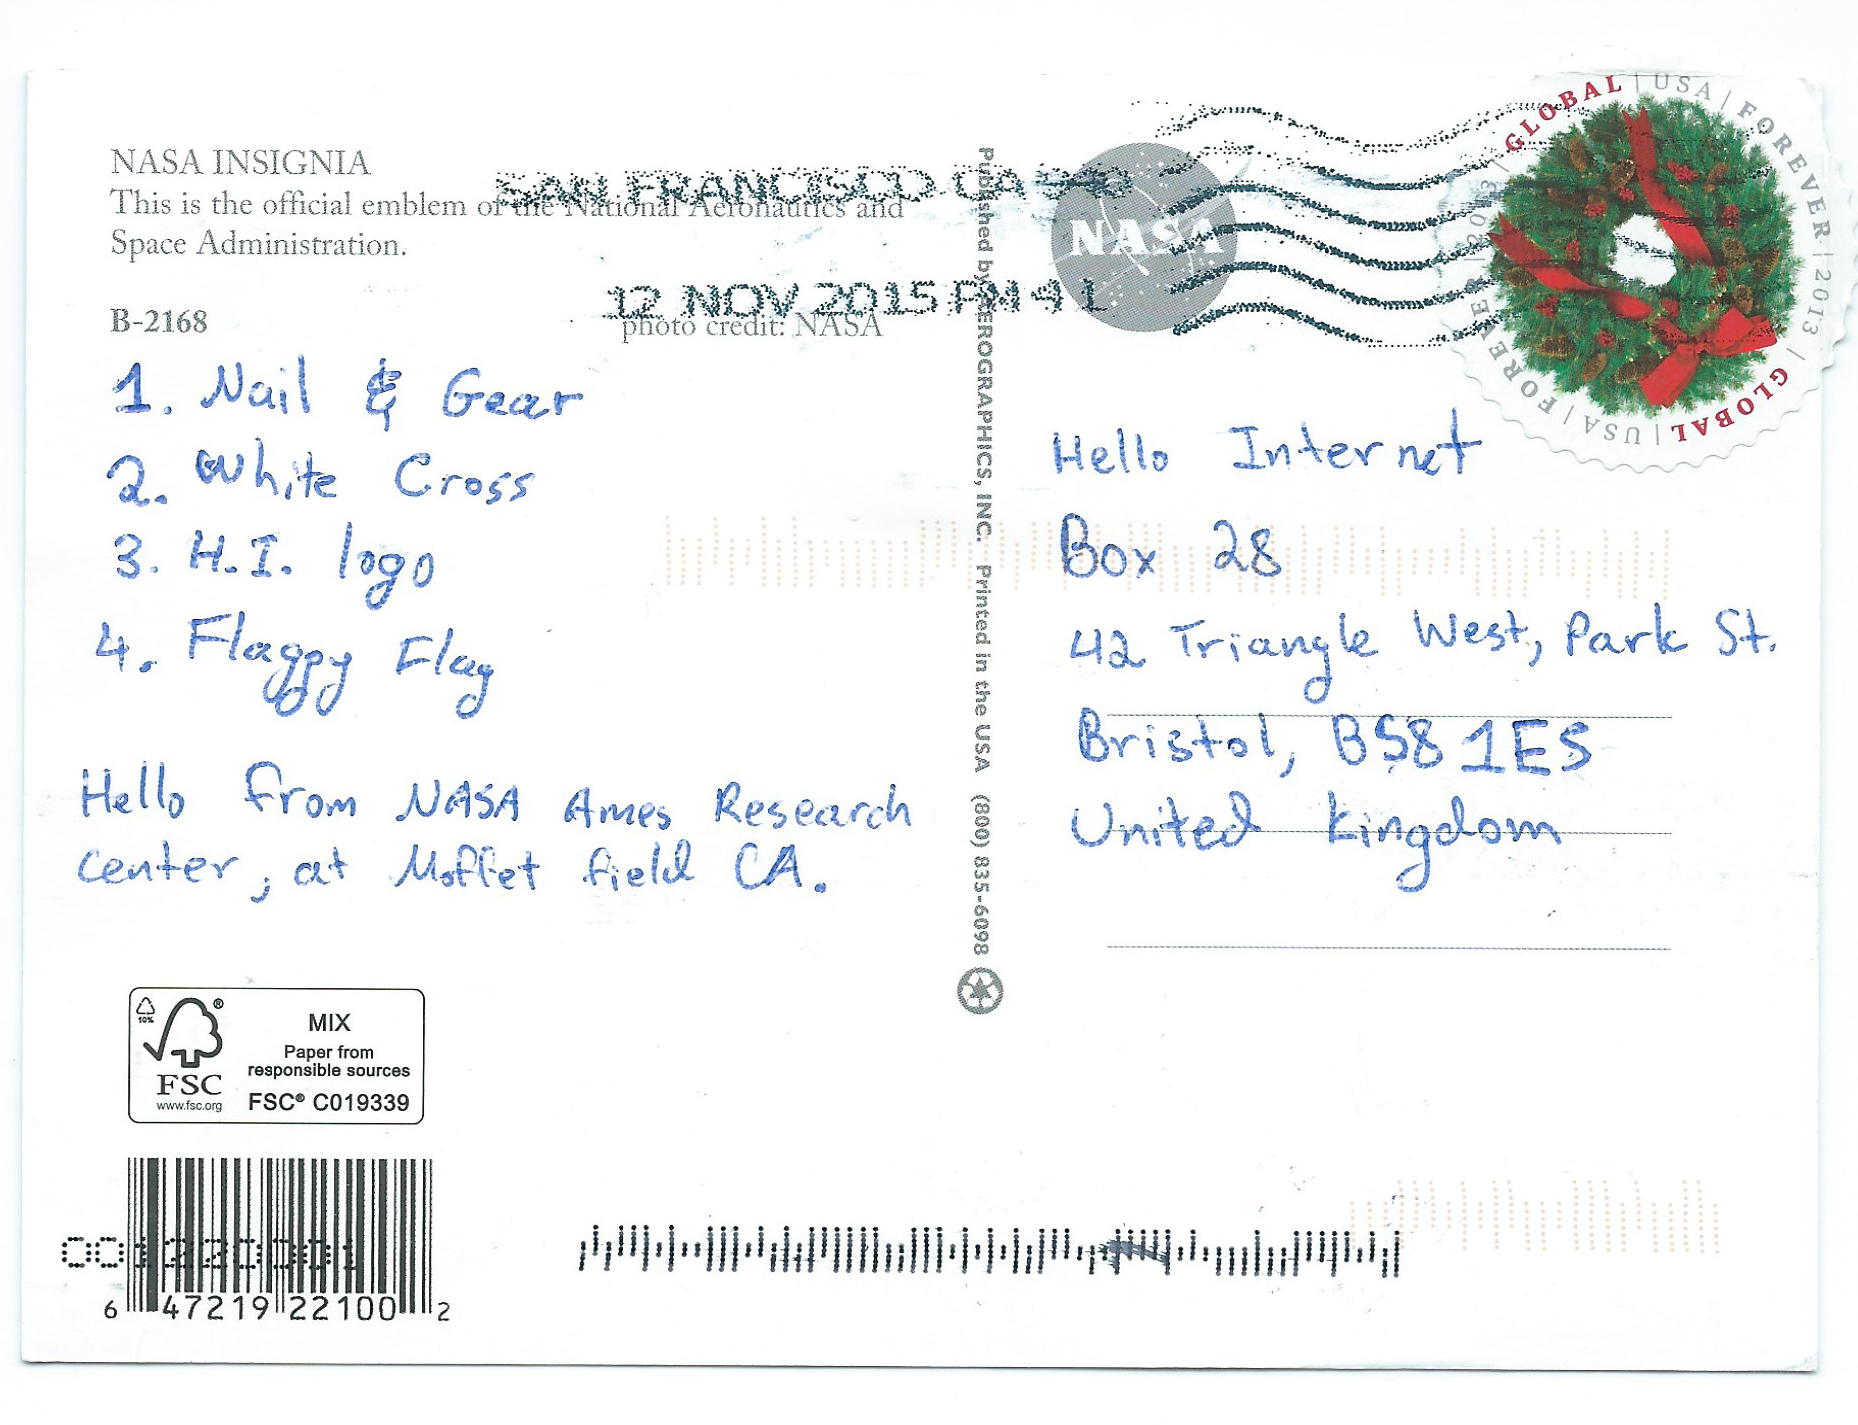 NASA INSIGNIA
This is the official emblem of the National Aeronautics and
Space Administration.
B-2168
photo credit: NASA
SAN FRANCISCO CA
12 NOV 2015 PM 4 L
1. Nail & Gear
2. White Cross
3. H.I. logo
4. Flaggy Flag
Hello from NASA Ames Research
Center, at Moffet field CA.
MIX
Paper from
responsible sources
FSC® C019339
10%
FSC
www.fsc.org
6 47219 22100 2
Published by AEROGRAPHICS, INC. Printed in the USA (800) 835-6098
NASA
GLOBAL | USA | FOREVER | 2013 | GLOBAL | USA | FOREVER | 2013 |
Hello Internet
Box 28
42 Triangle West, Park St.
Bristol, BS8 1ES
United Kingdom